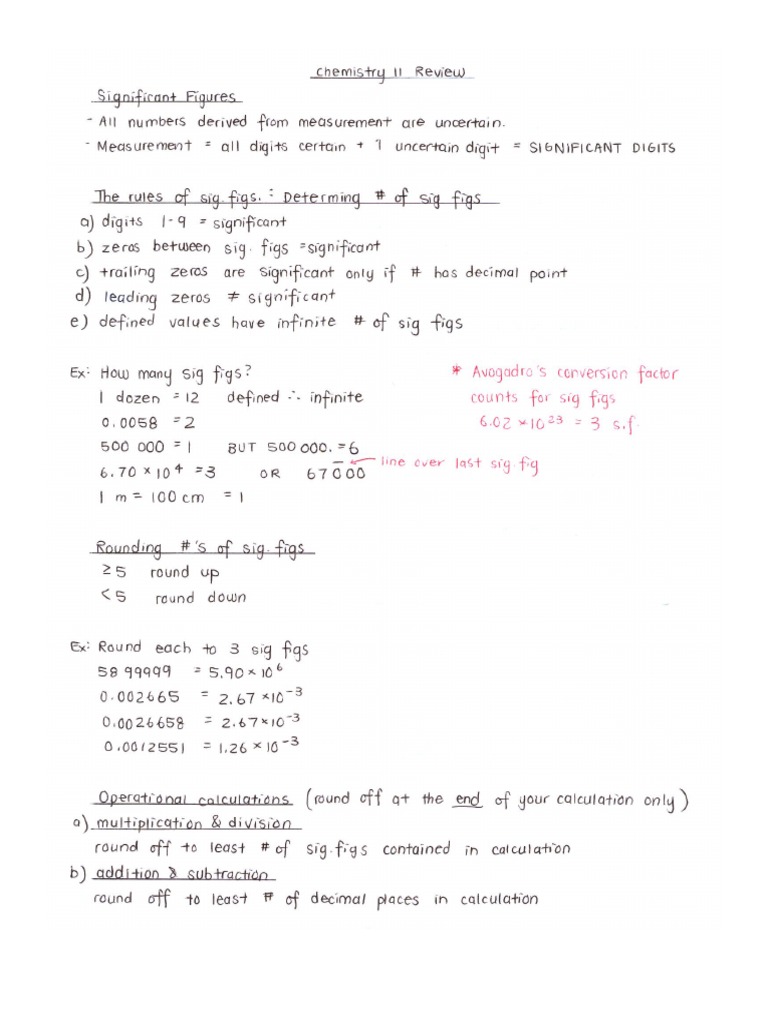 Chemistry 11 Review
Significant Figures
- All numbers derived from measurement are uncertain.
- Measurement = all digits certain + 1 uncertain digit = SIGNIFICANT DIGITS
The rules of sig. figs. : Determing # of sig figs
a) digits 1-9 = significant
b) zeros between sig. figs = significant
c) trailing zeros are significant only if # has decimal point
d) leading zeros ≠ significant
e) defined values have infinite # of sig figs
Ex: How many sig figs?
1 dozen = 12 defined ∴ infinite
0.0058 = 2
500 000 = 1 BUT 500 000. = 6
6.70 × 10⁴ = 3 OR 670̅00 ← line over last sig. fig
1 m = 100 cm = 1
* Avogadro's conversion factor
counts for sig figs
6.02 × 10²³ = 3 s.f.
Rounding #'s of sig. figs
≥5 round up
<5 round down
Ex: Round each to 3 sig figs
58 99999 = 5.90 × 10⁶
0.002665 = 2.67 × 10⁻³
0.0026658 = 2.67 × 10⁻³
0.0012551 = 1.26 × 10⁻³
Operational calculations (round off at the end of your calculation only)
a) multiplication & division
round off to least # of sig. figs contained in calculation
b) addition & subtraction
round off to least # of decimal places in calculation